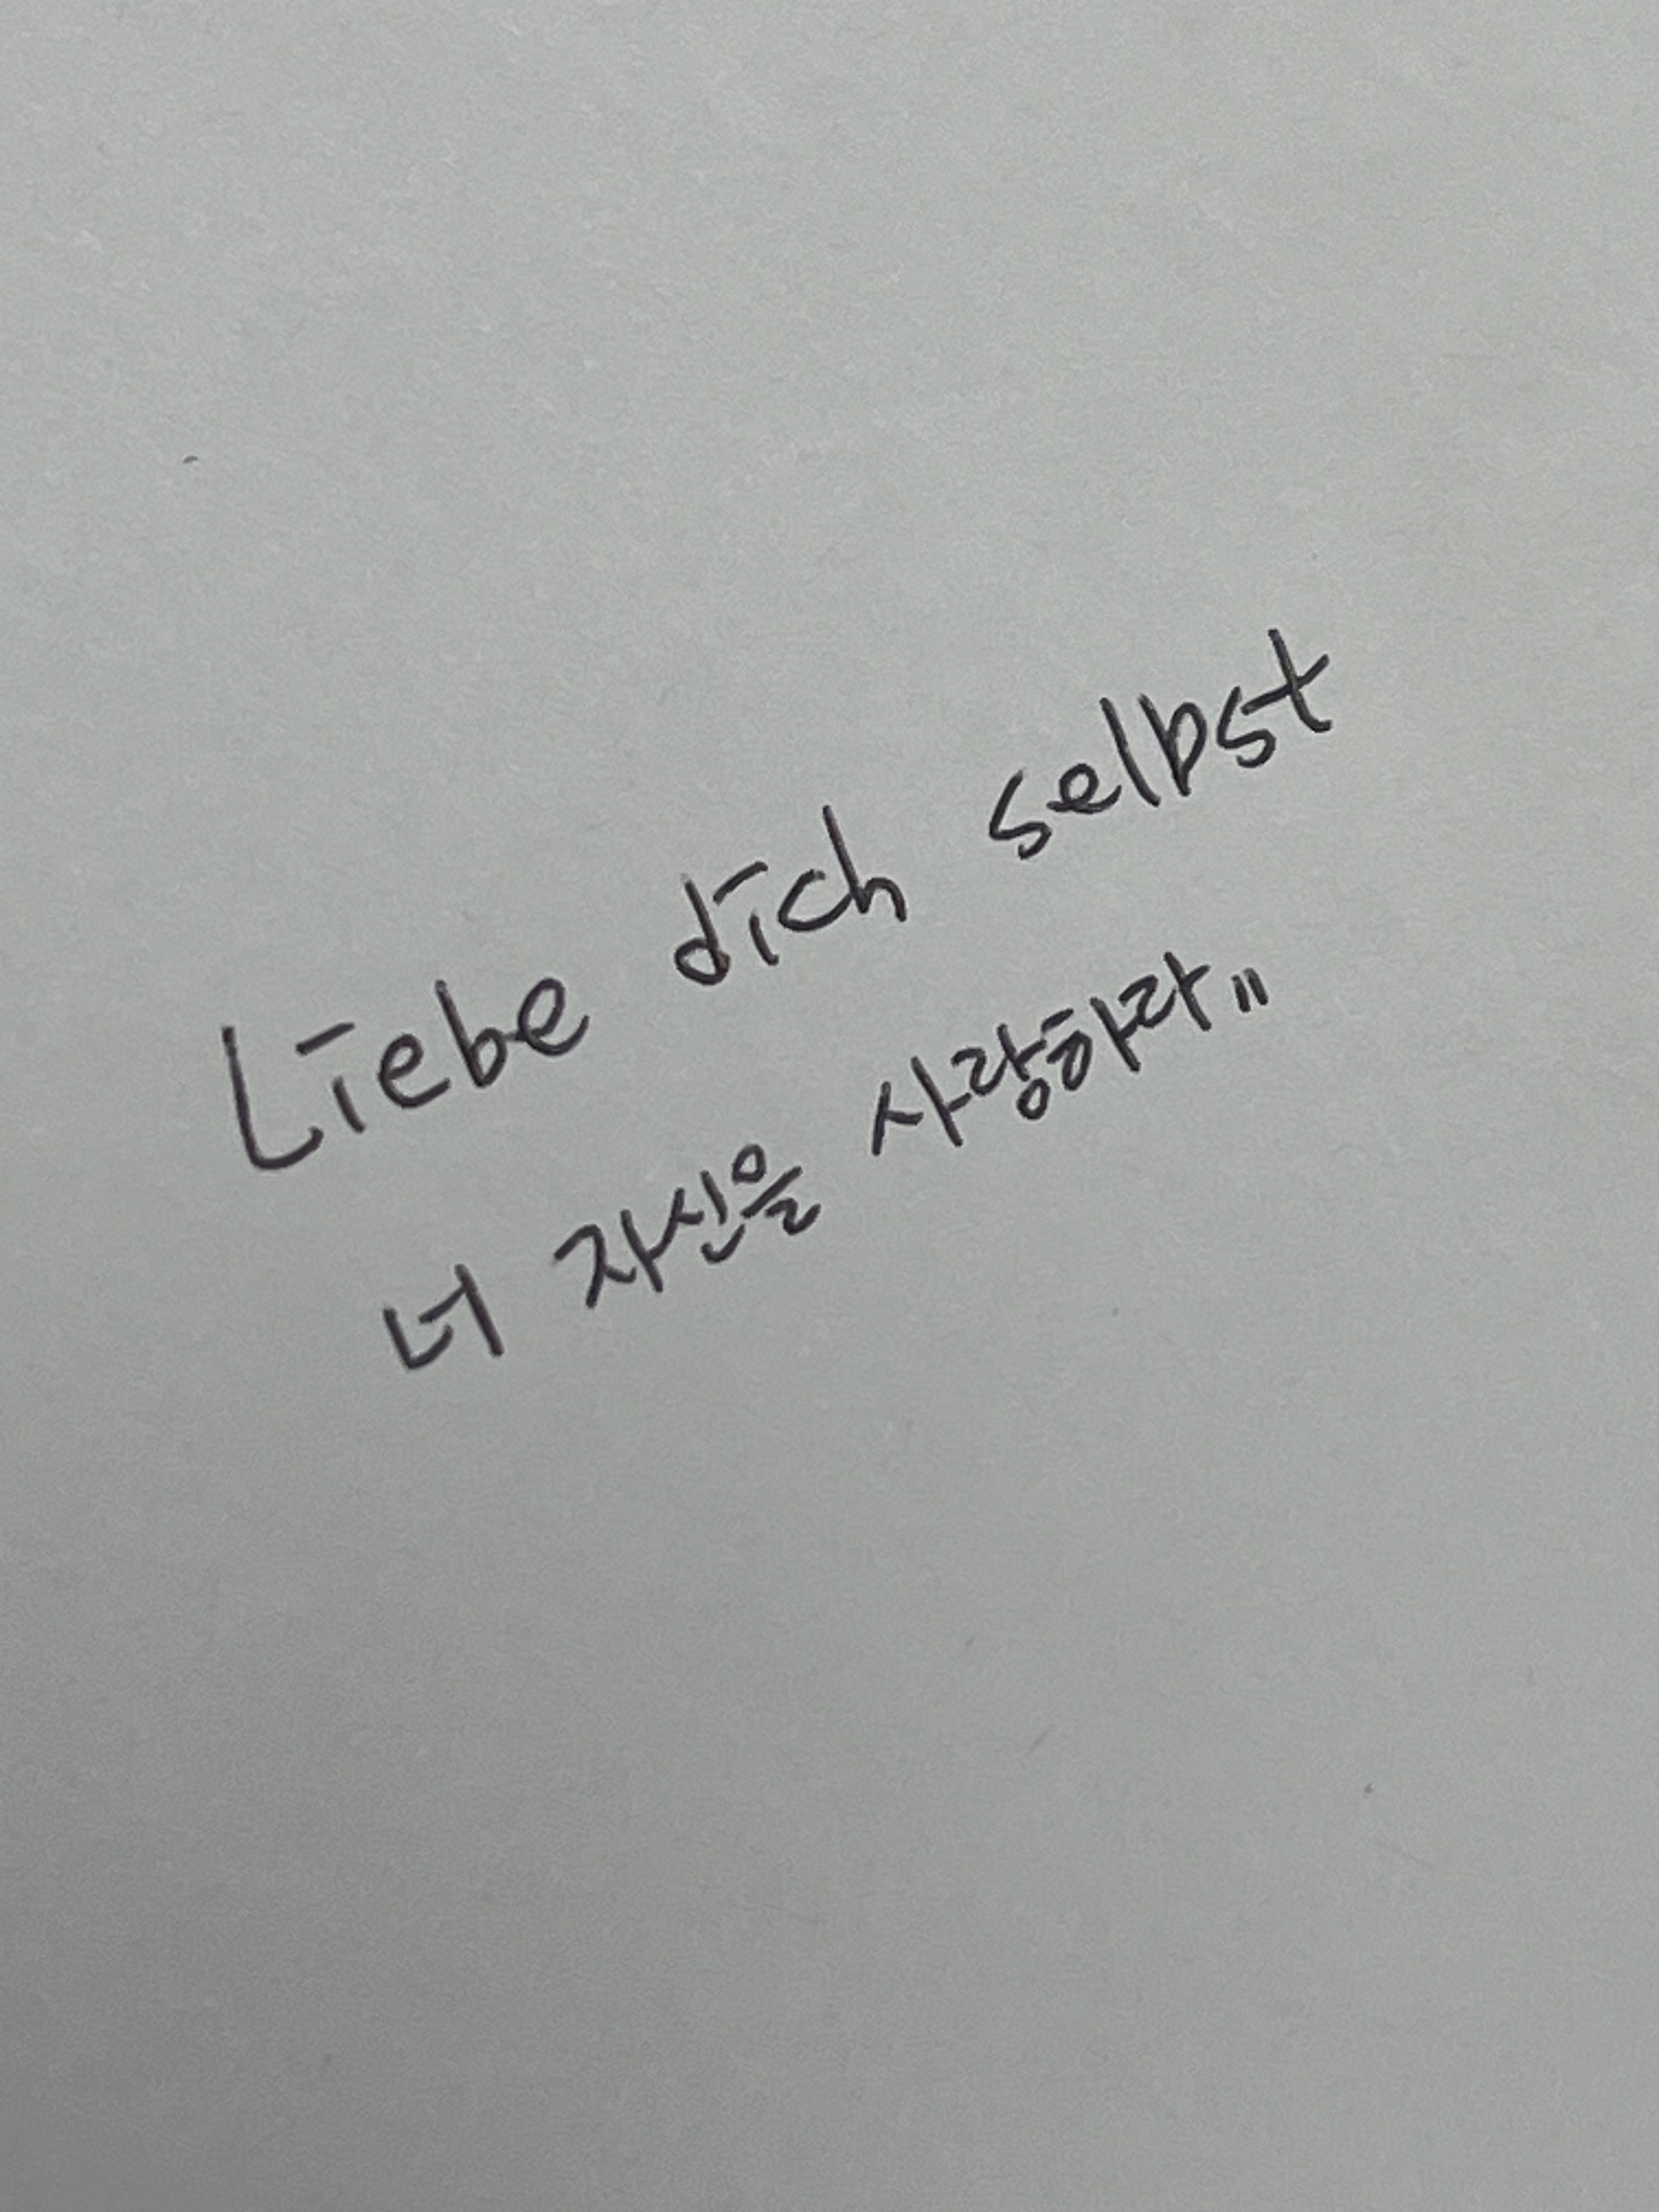 Liebe dich selbst
너 자신을 사랑하라"